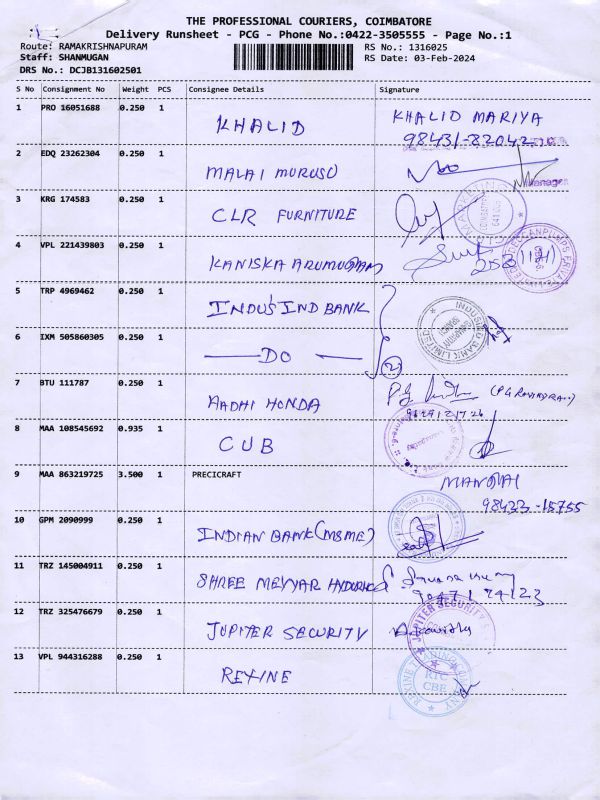 THE PROFESSIONAL COURIERS, COIMBATORE
Delivery Runsheet - PCG - Phone No.:0422-3505555 - Page No.:1
Route: RAMAKRISHNAPURAM RS No.: 1316025
Staff: SHANMUGAN RS Date: 03-Feb-2024
DRS No.: DCJB131602501
S No Consignment No Weight PCS Consignee Details Signature
1 PRO 16051688 0.250 1 KHALID KHALID MARIYA
98431-82042
2 EDQ 23262304 0.250 1 MALAI MURUSU
Manager
3 KRG 174583 0.250 1 CLR FURNITURE
MARKETING
4 VPL 221439803 0.250 1 KANISKA ARUMUGAM
5 TRP 4969462 0.250 1 INDUSIND BANK
INDUSIND BANK LIMITED
6 IXM 505860305 0.250 1 DO 2
7 BTU 111787 0.250 1 AADHI HONDA
8 MAA 108545692 0.935 1 CUB
9 MAA 863219725 3.500 1 PRECICRAFT
98433-15755
10 GPM 2090999 0.250 1 INDIAN BANK (MSME)
11 TRZ 145004911 0.250 1 SHREE MEYYAR
12 TRZ 325476679 0.250 1 JUPITER SECURITY
JUPITER SECURITY
13 VPL 944316288 0.250 1 REXINE
REXINE TRADING COMPANY
RTC
CBE